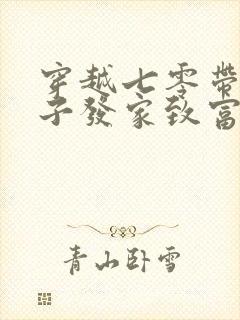 穿越七零帶
子發家致富
青山臥雪